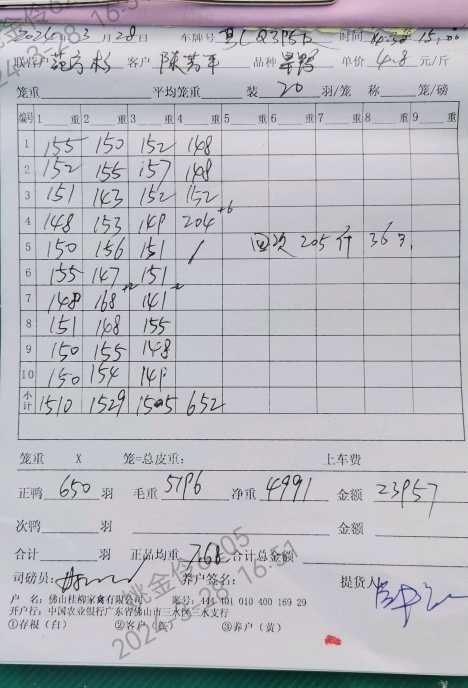 2024年 3月28日 车牌号 时间 15:00
联 客户 品种 单价 4.8 元/斤
笼重 平均笼重 装 20 羽/笼 称 笼/磅
编号 1 重 2 重 3 重 4 重 5 重 6 重 7 重 8 重 9 重
1 155 150 152 148
2 152 155 157 148
3 151 143 152 152
4 148 153 149 204 +6
5 150 156 151 / 回次 205斤 36只
6 155 147 151
7 148 168 +2 141 -2
8 151 148 155
9 150 155 148
10 150 154 149
小计 1510 1529 1505 652
笼重 X 笼=总皮重: 上车费
正鸭 650 羽 毛重 5196 净重 4991 金额 23957
次鸭 羽 金额
合计 羽 正品均重 7.68 合计总金额
司磅员: 养户签名: 提货人
户 名: 佛山桂柳家禽有限公司 账号: 444 401 010 400 169 29
开户行: 中国农业银行广东省佛山市三水区三水支行
①存根(白) ②客户(红) ③养户(黄)
2024-3-28 16:51